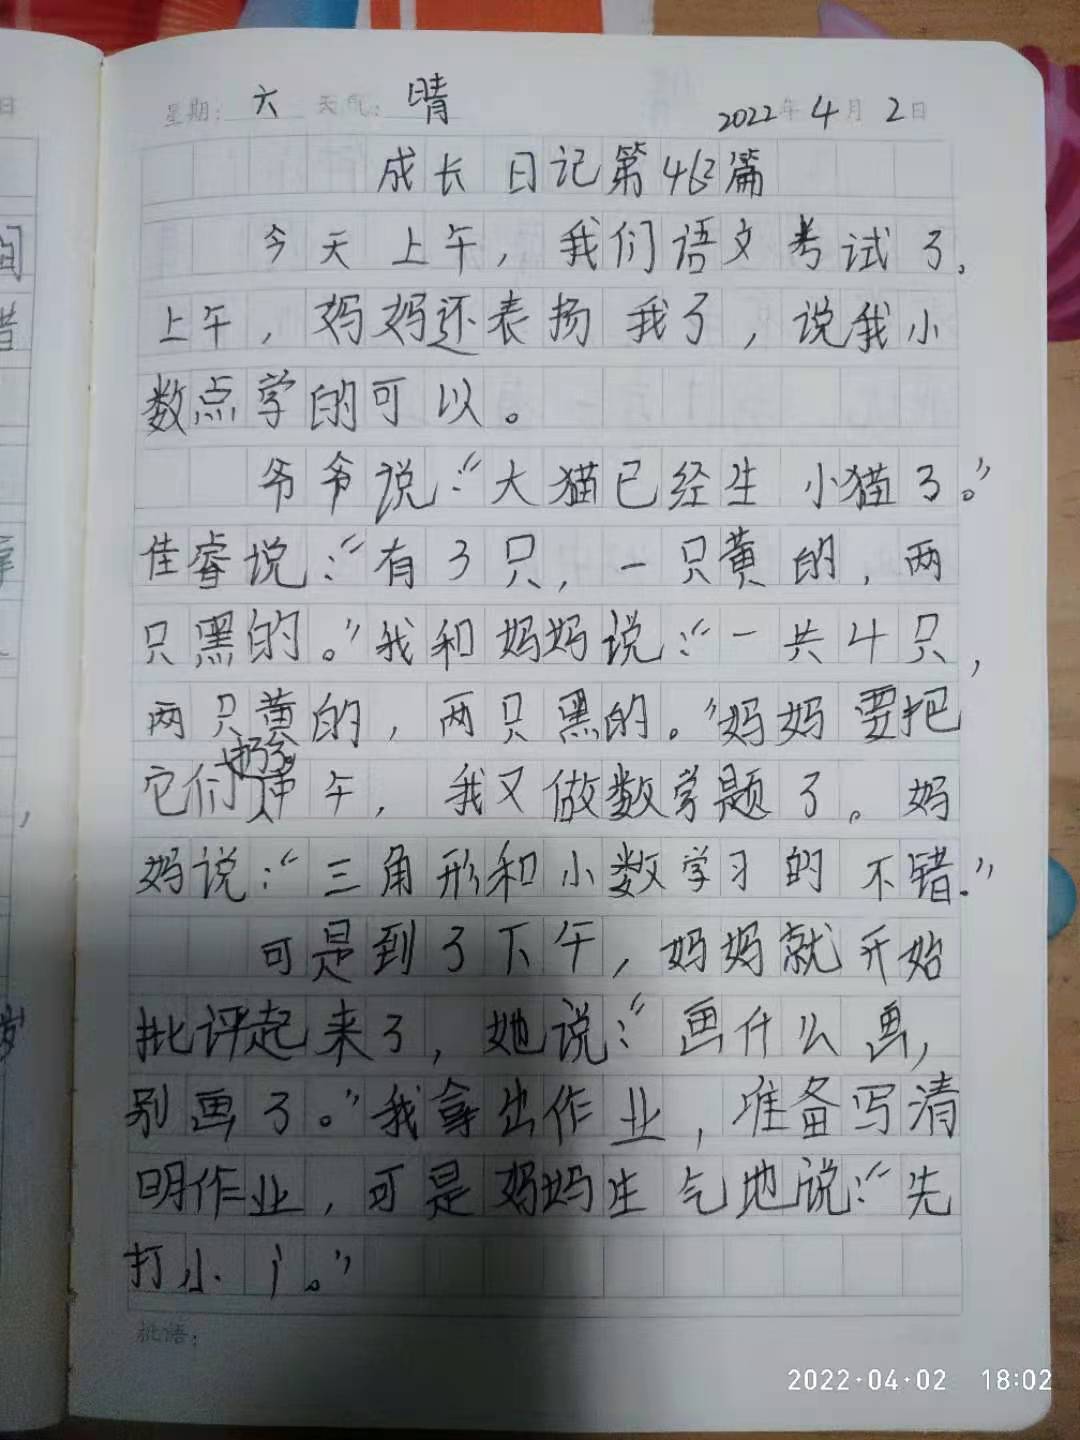 星期：六 天气：晴 2022年4月2日
成长日记第462篇
今天上午，我们语文考试了。
上午，妈妈还表扬我了，说我小
数点学的可以。
爷爷说：“大猫已经生小猫了。”
佳睿说：“有3只，一只黄的，两
只黑的。”我和妈妈说：“一共4只，
两只黄的，两只黑的。”妈妈要把
扔了。
它们 午，我又做数学题了。妈
妈说：“三角形和小数学习的不错.”
可是到了下午，妈妈就开始
批评起来了，她说：“画什么画，
别画了。”我拿出作业，准备写清
明作业，可是妈妈生气地说：“先
打小 。”
批语：
2022·04·02 18:02